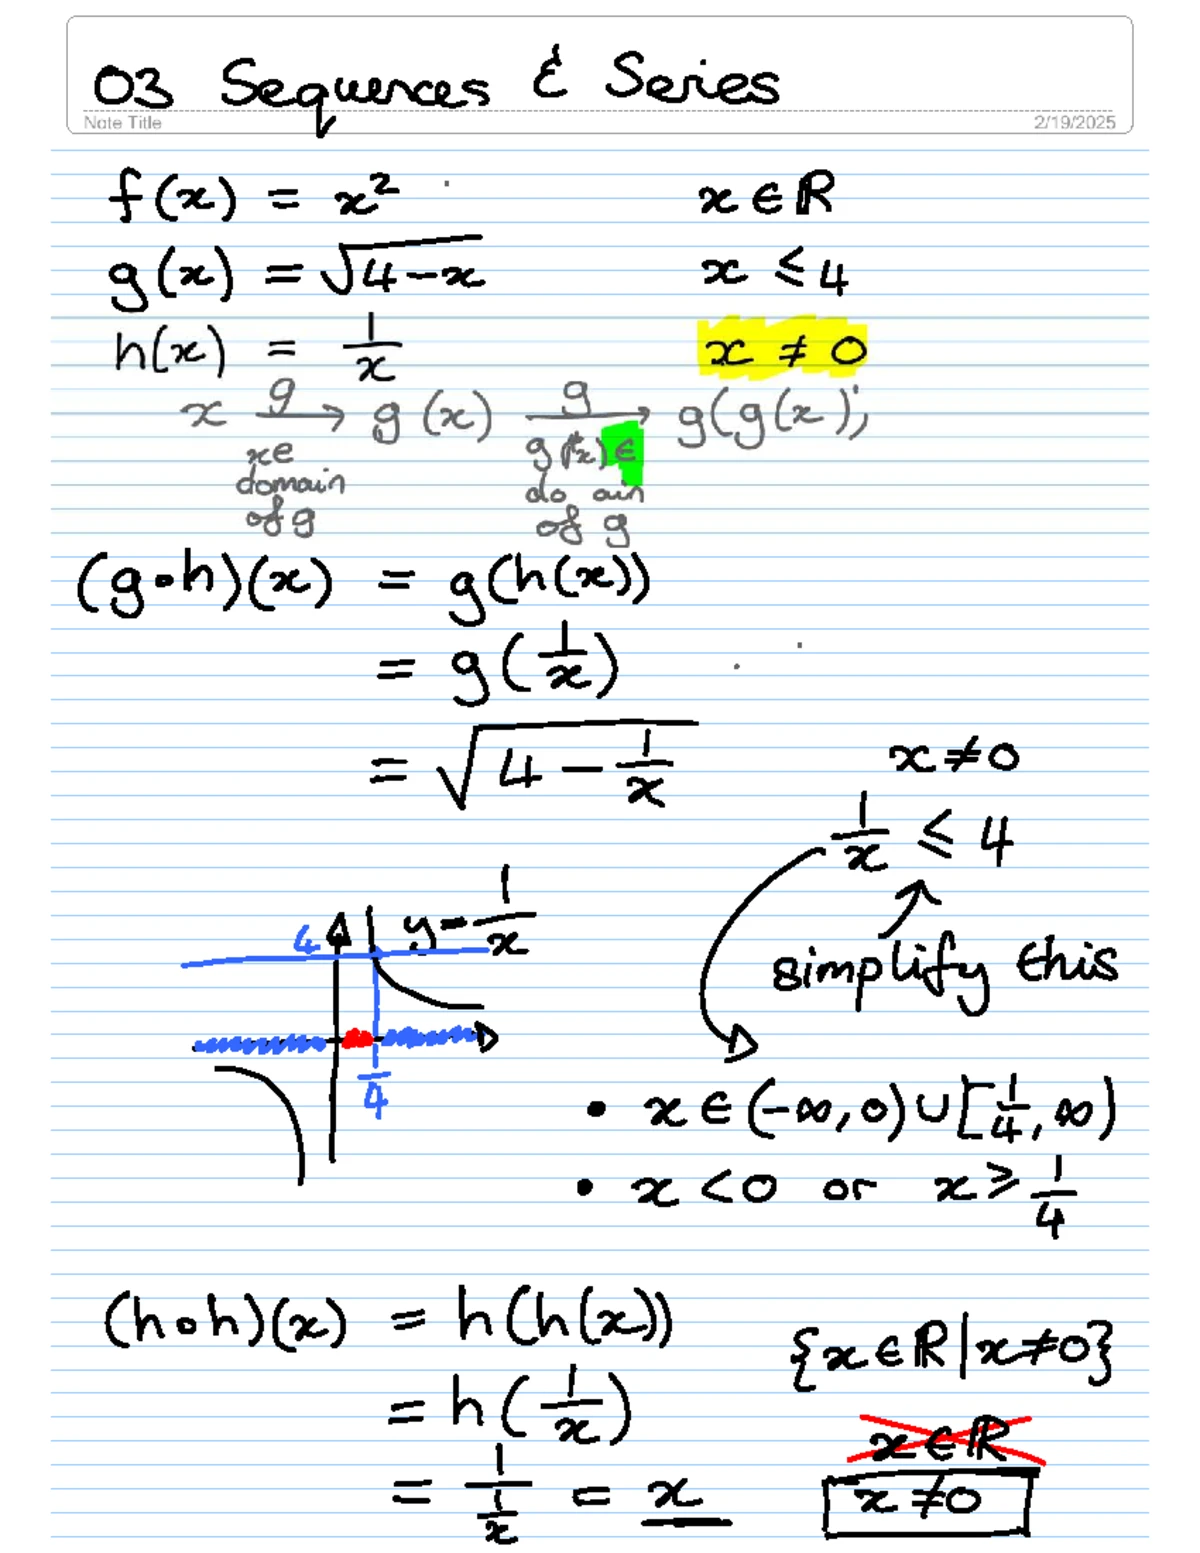 03 Sequences & Series
Note Title 2/19/2025
f(x) = x² x ∈ ℝ
g(x) = √(4-x) x ≤ 4
h(x) = 1/x x ≠ 0
x →g g(x) →g g(g(x));
x ∈ domain of g g(x) ∈ do ain of g
(g∘h)(x) = g(h(x))
= g(1/x)
= √(4 - 1/x) x ≠ 0
1/x ≤ 4
simplify this
y = 1/x
4
1/4
• x ∈ (-∞, 0) ∪ [1/4, ∞)
• x < 0 or x ≥ 1/4
(h∘h)(x) = h(h(x)) {x ∈ ℝ | x ≠ 0}
= h(1/x) x ∈ ℝ
= 1/(1/x) = x x ≠ 0